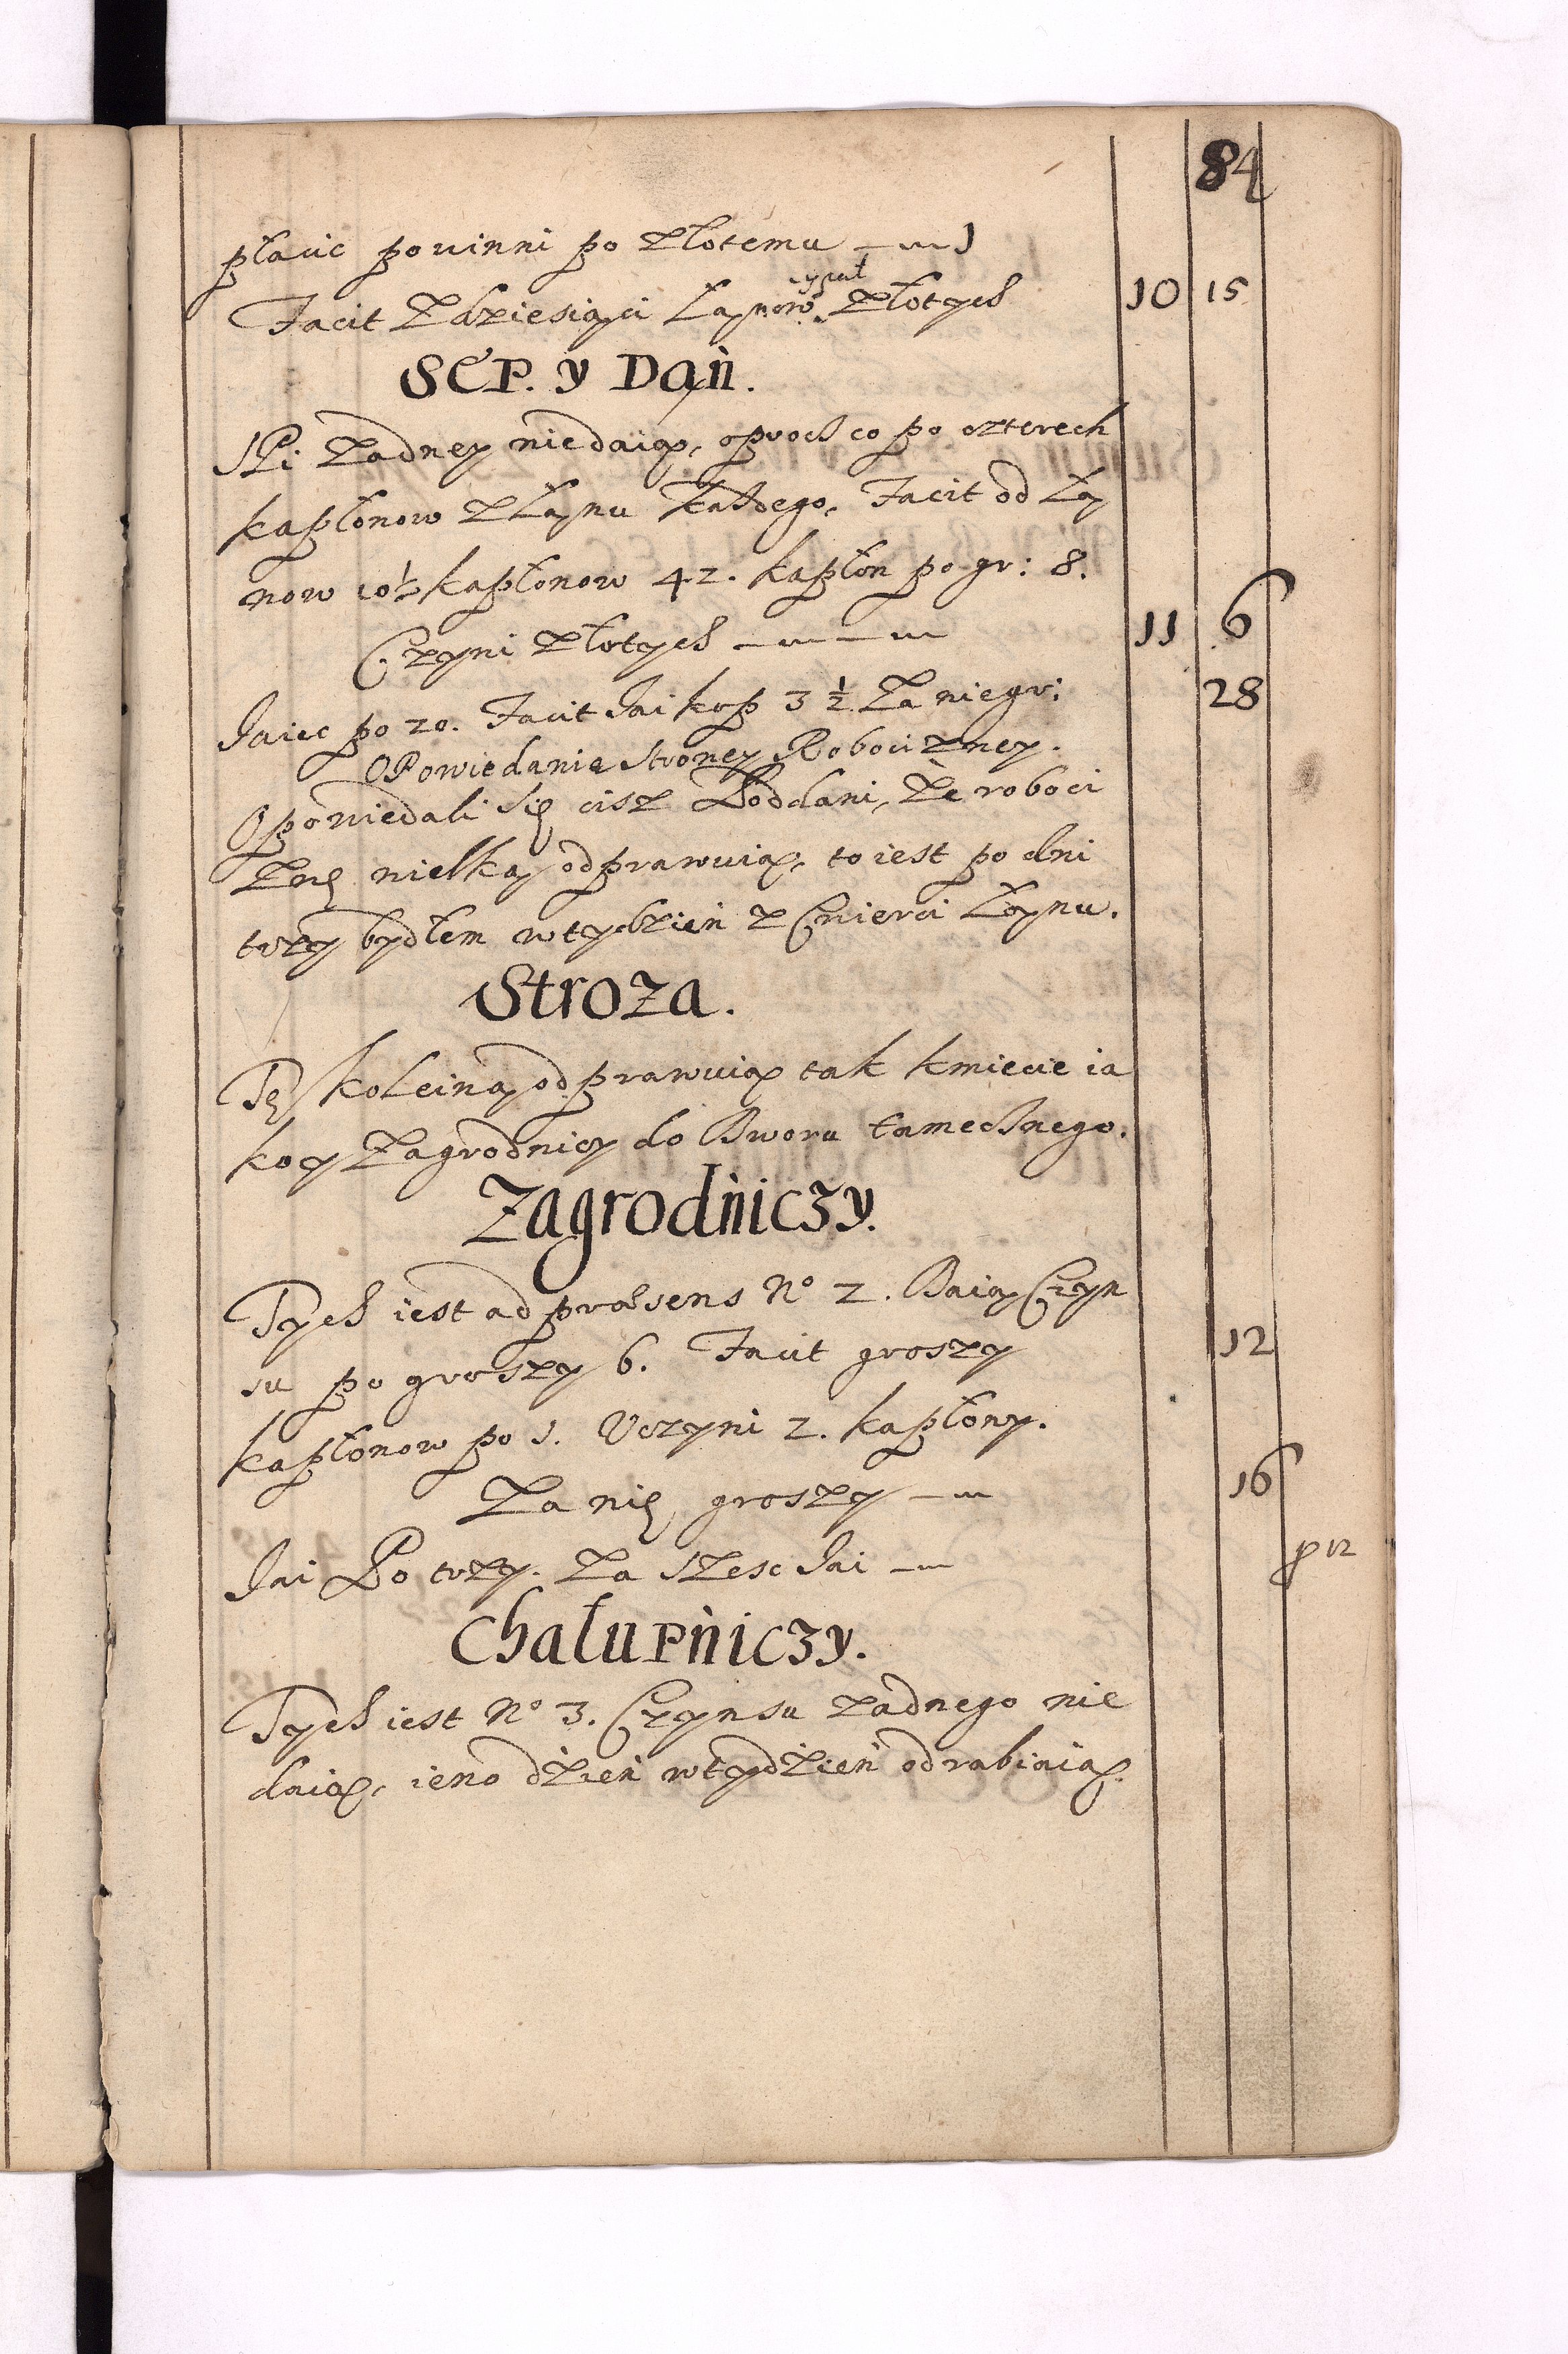 84
płacic powinni po złotemu — 1
y puł
Facit z dziesiąci Łanow złotych 10 15
SEP. y Dań.
SPi żadney niedaią, oproch co po czterech
kapłonow z Łanu każdego, Facit od Ła
now 10½ kapłonow 42. kapłon po gr: 8.
Czyni złotych — 11 6
Jaiec po 20. Facit Jai kop 3 ½ Za nie gr: 28
OPowiedanie strony Robocizney.
Opowiedali się cisz Poddani, że roboci
znę wielką odprawuią, to iest po dni
trzy bydłem w tydzień z Cwierci Łanu.
Stroza.
Tę koleiną odprawuią tak kmiecie ia
ko y Zagrodnicy do Dworu tamecznego.
Zagrodniczy.
Tych iest ad præsens No 2. Daią Czyn
su po groszy 6. Facit groszy 12
kapłonow po 1. Uczyni 2. kapłony.
Za nię groszy — 16
Jai Po trzy. Za szesc Jai — 12
Chałupniczy.
Tych iest No 3. Czynsu żadnego nie
daią, ieno dzień w tydzień odrabiaią.